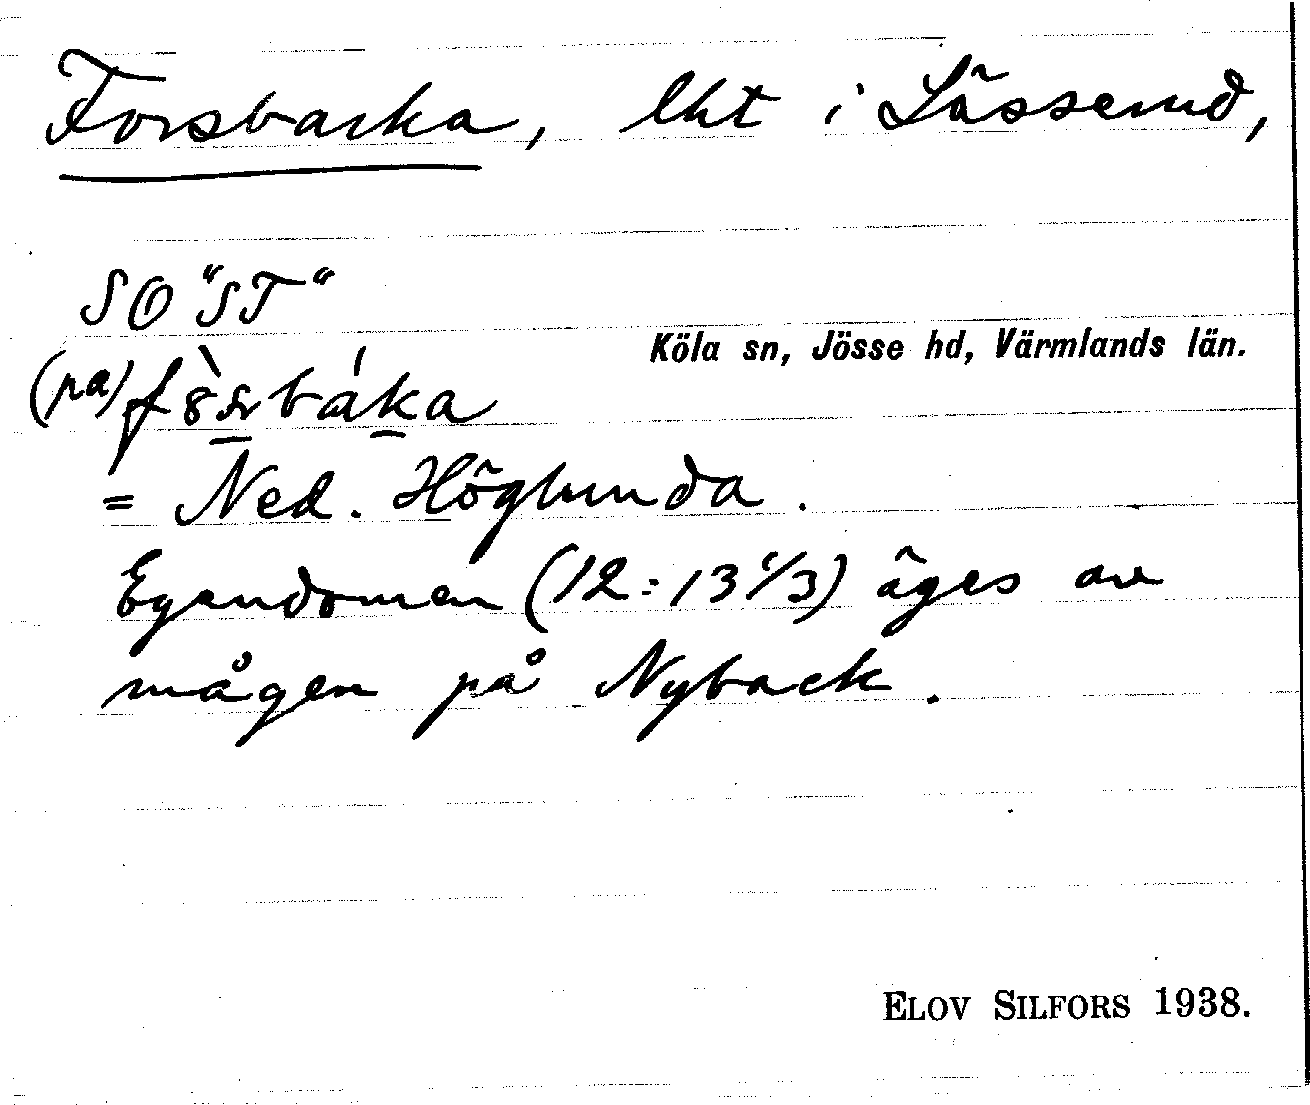 Forsbacka, lht i Lässerud,
SO "ST"
Köla sn, Jösse hd, Värmlands län.
(pa)
= Ned. Höglunda.
Egendomen (12:13⅓) äges av
mågen på Nyback.
ELOV SILFORS 1938.